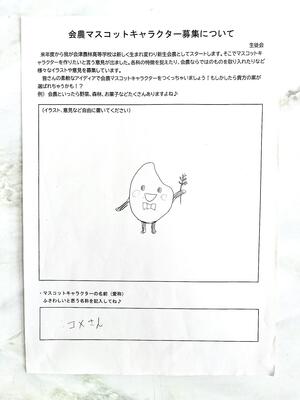 会農マスコットキャラクター募集について
生徒会
来年度から我が会津農林高等学校は新しく生まれ変わり新生会農としてスタートします。そこでマスコットキ
ャラクターを作りたいと言う意見が出ました。各科の特徴を捉えたり、会農ならではのものを取り入れたりなど
様々なイラストや意見を募集しています。
皆さんの素敵なアイディアで会農マスコットキャラクターをつくっちゃいましょう！もしかしたら貴方の案が
選ばれちゃうかも！？
例）会農といったら野菜、森林、お菓子などたくさんありますよね♪
（イラスト、意見など自由に書いてください）
・マスコットキャラクターの名前（愛称）
ふさわしいと思う名称を記入してね♪
コメさん